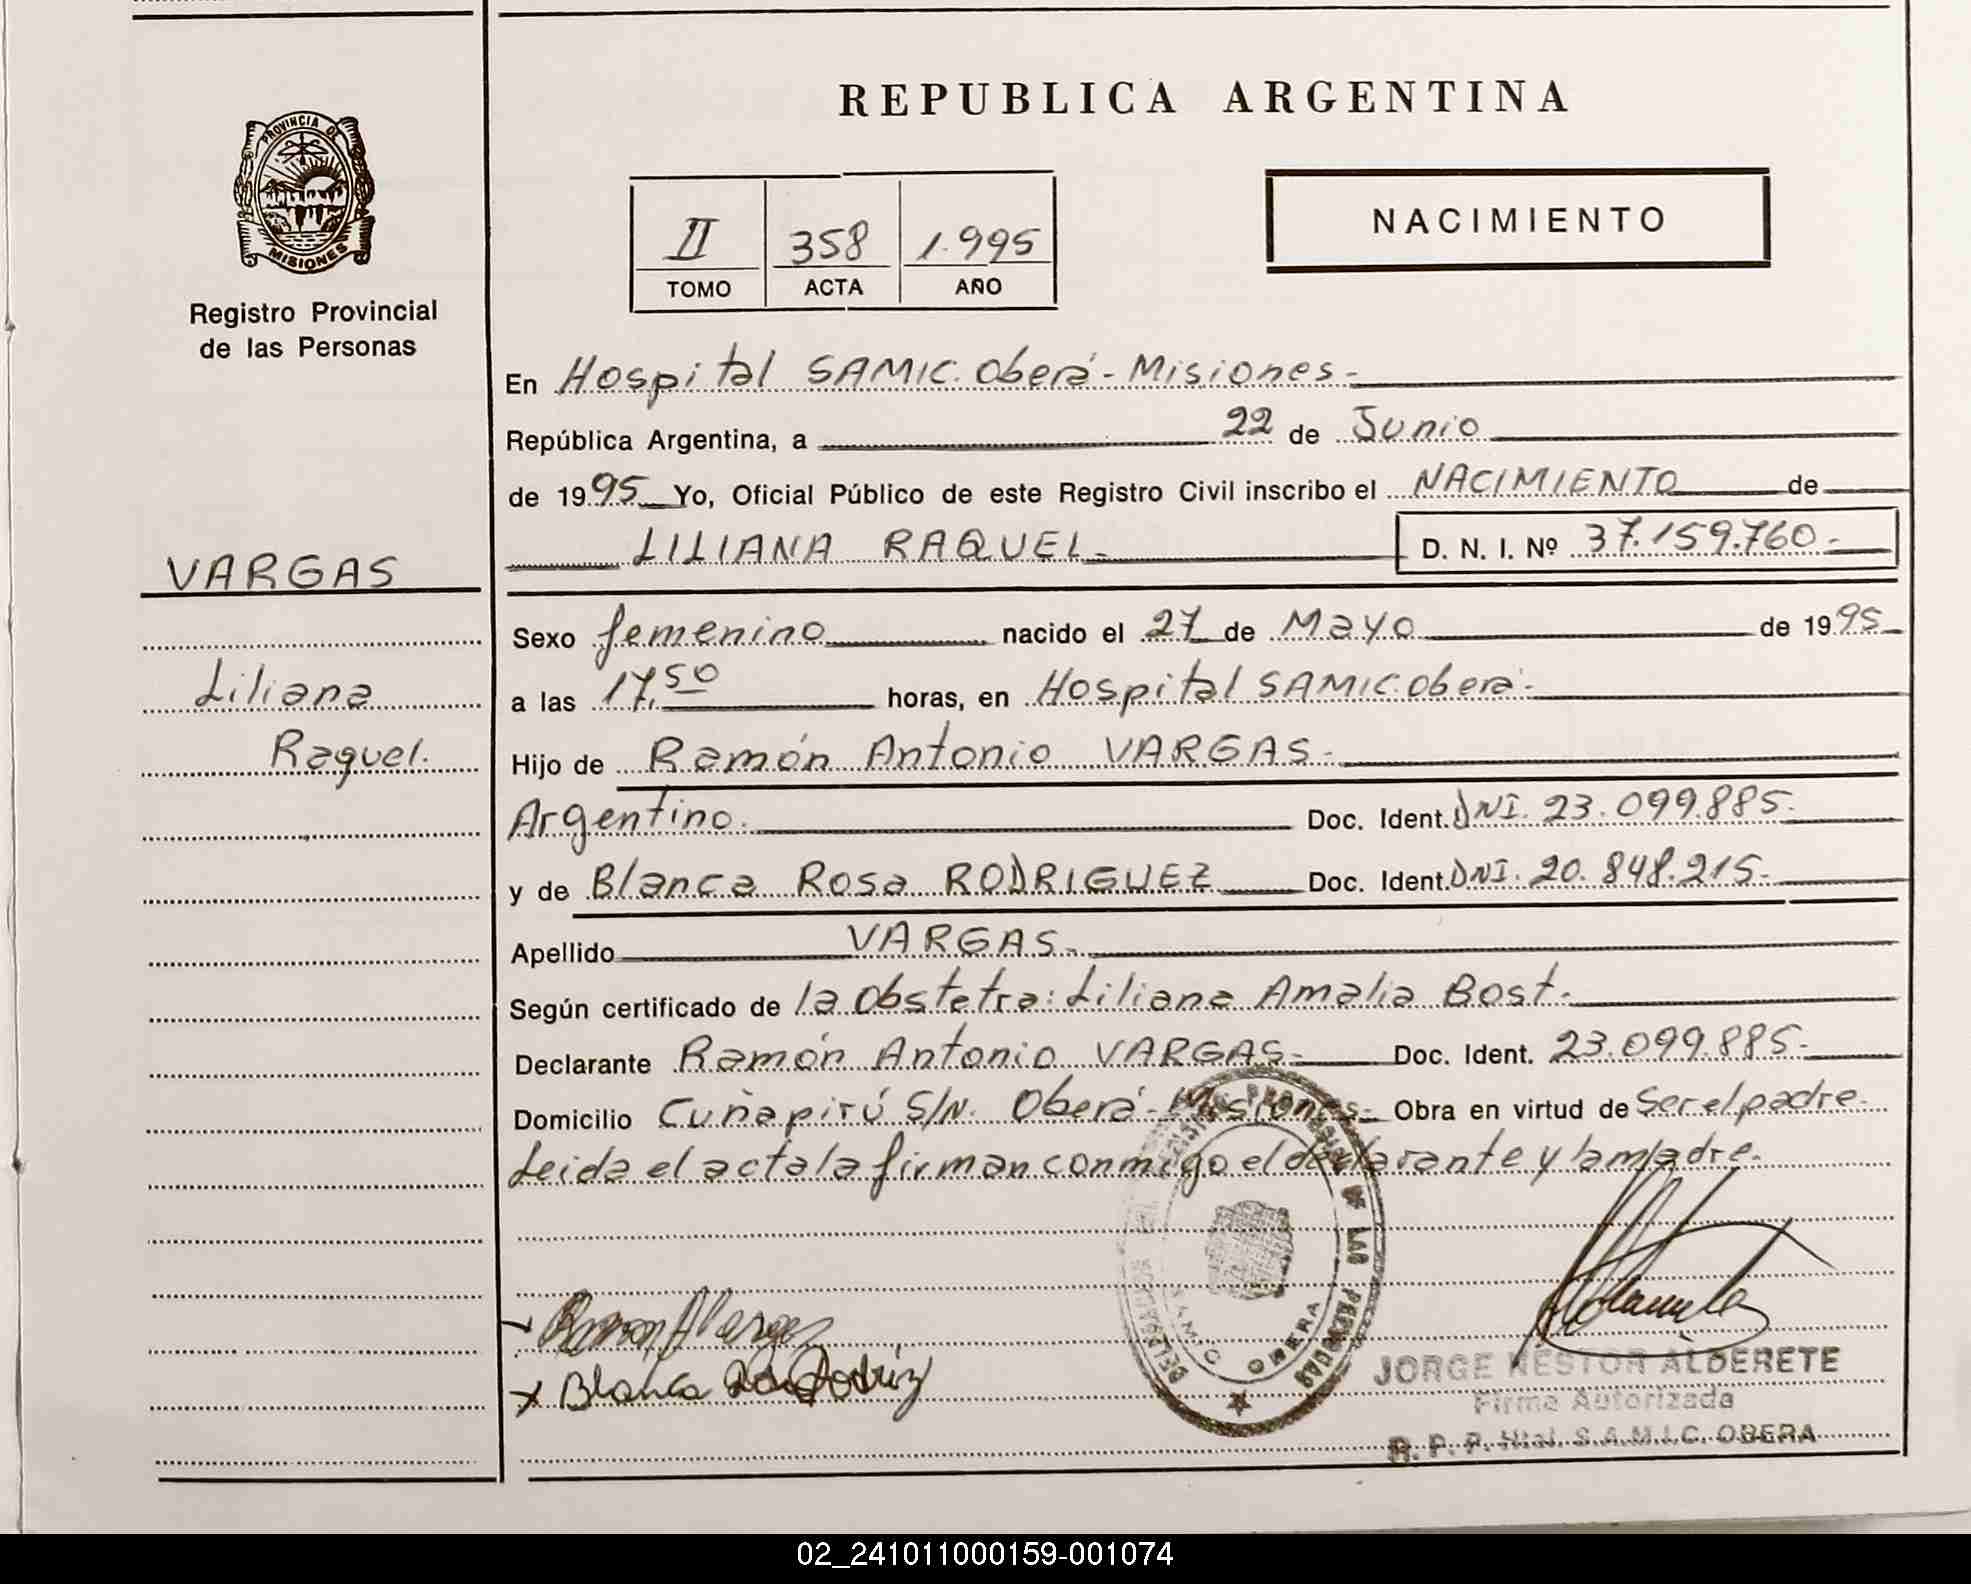 REPUBLICA ARGENTINA
PROVINCIA DE
MISIONES
Registro Provincial
de las Personas
II 358 1.995
TOMO ACTA AÑO
NACIMIENTO
En Hospital SAMIC. Oberá - Misiones -
República Argentina, a 22 de Junio
de 1995 Yo, Oficial Público de este Registro Civil inscribo el NACIMIENTO de
LILIANA RAQUEL - D. N. I. Nº 37.159.760 -
VARGAS
Liliana
Raquel.
Sexo femenino nacido el 27 de Mayo de 1995
a las 17,50 horas, en Hospital SAMIC. Oberá -
Hijo de Ramón Antonio VARGAS -
Argentino. Doc. Ident. DNI. 23.099.885 -
y de Blanca Rosa RODRIGUEZ Doc. Ident. DNI. 20.848.215 -
Apellido VARGAS -
Según certificado de la Obstetra: Liliana Amalia Bost -
Declarante Ramón Antonio VARGAS - Doc. Ident. 23.099.885 -
Domicilio Cuñapirú S/N. Oberá - Misiones - Obra en virtud de Ser el padre -
Leida el acta la firman conmigo el declarante y la madre -
DE LAS PERSONAS
SAMIC OBERA
Blanca Rosa Rodriguez
JORGE NESTOR ALDERETE
Firma Autorizada
R. P. P. Htal. S.A.M.I.C. OBERA
02_241011000159-001074